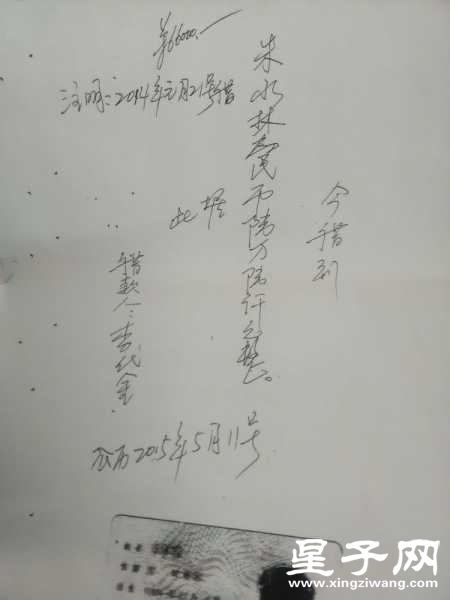 今借到
朱水林人民币陆万陆仟元整。
此据
借款人：李代金.
¥66000.—
注明：2014年元月21号借
农历2015年5月11号
星子网
www.xingziwang.com